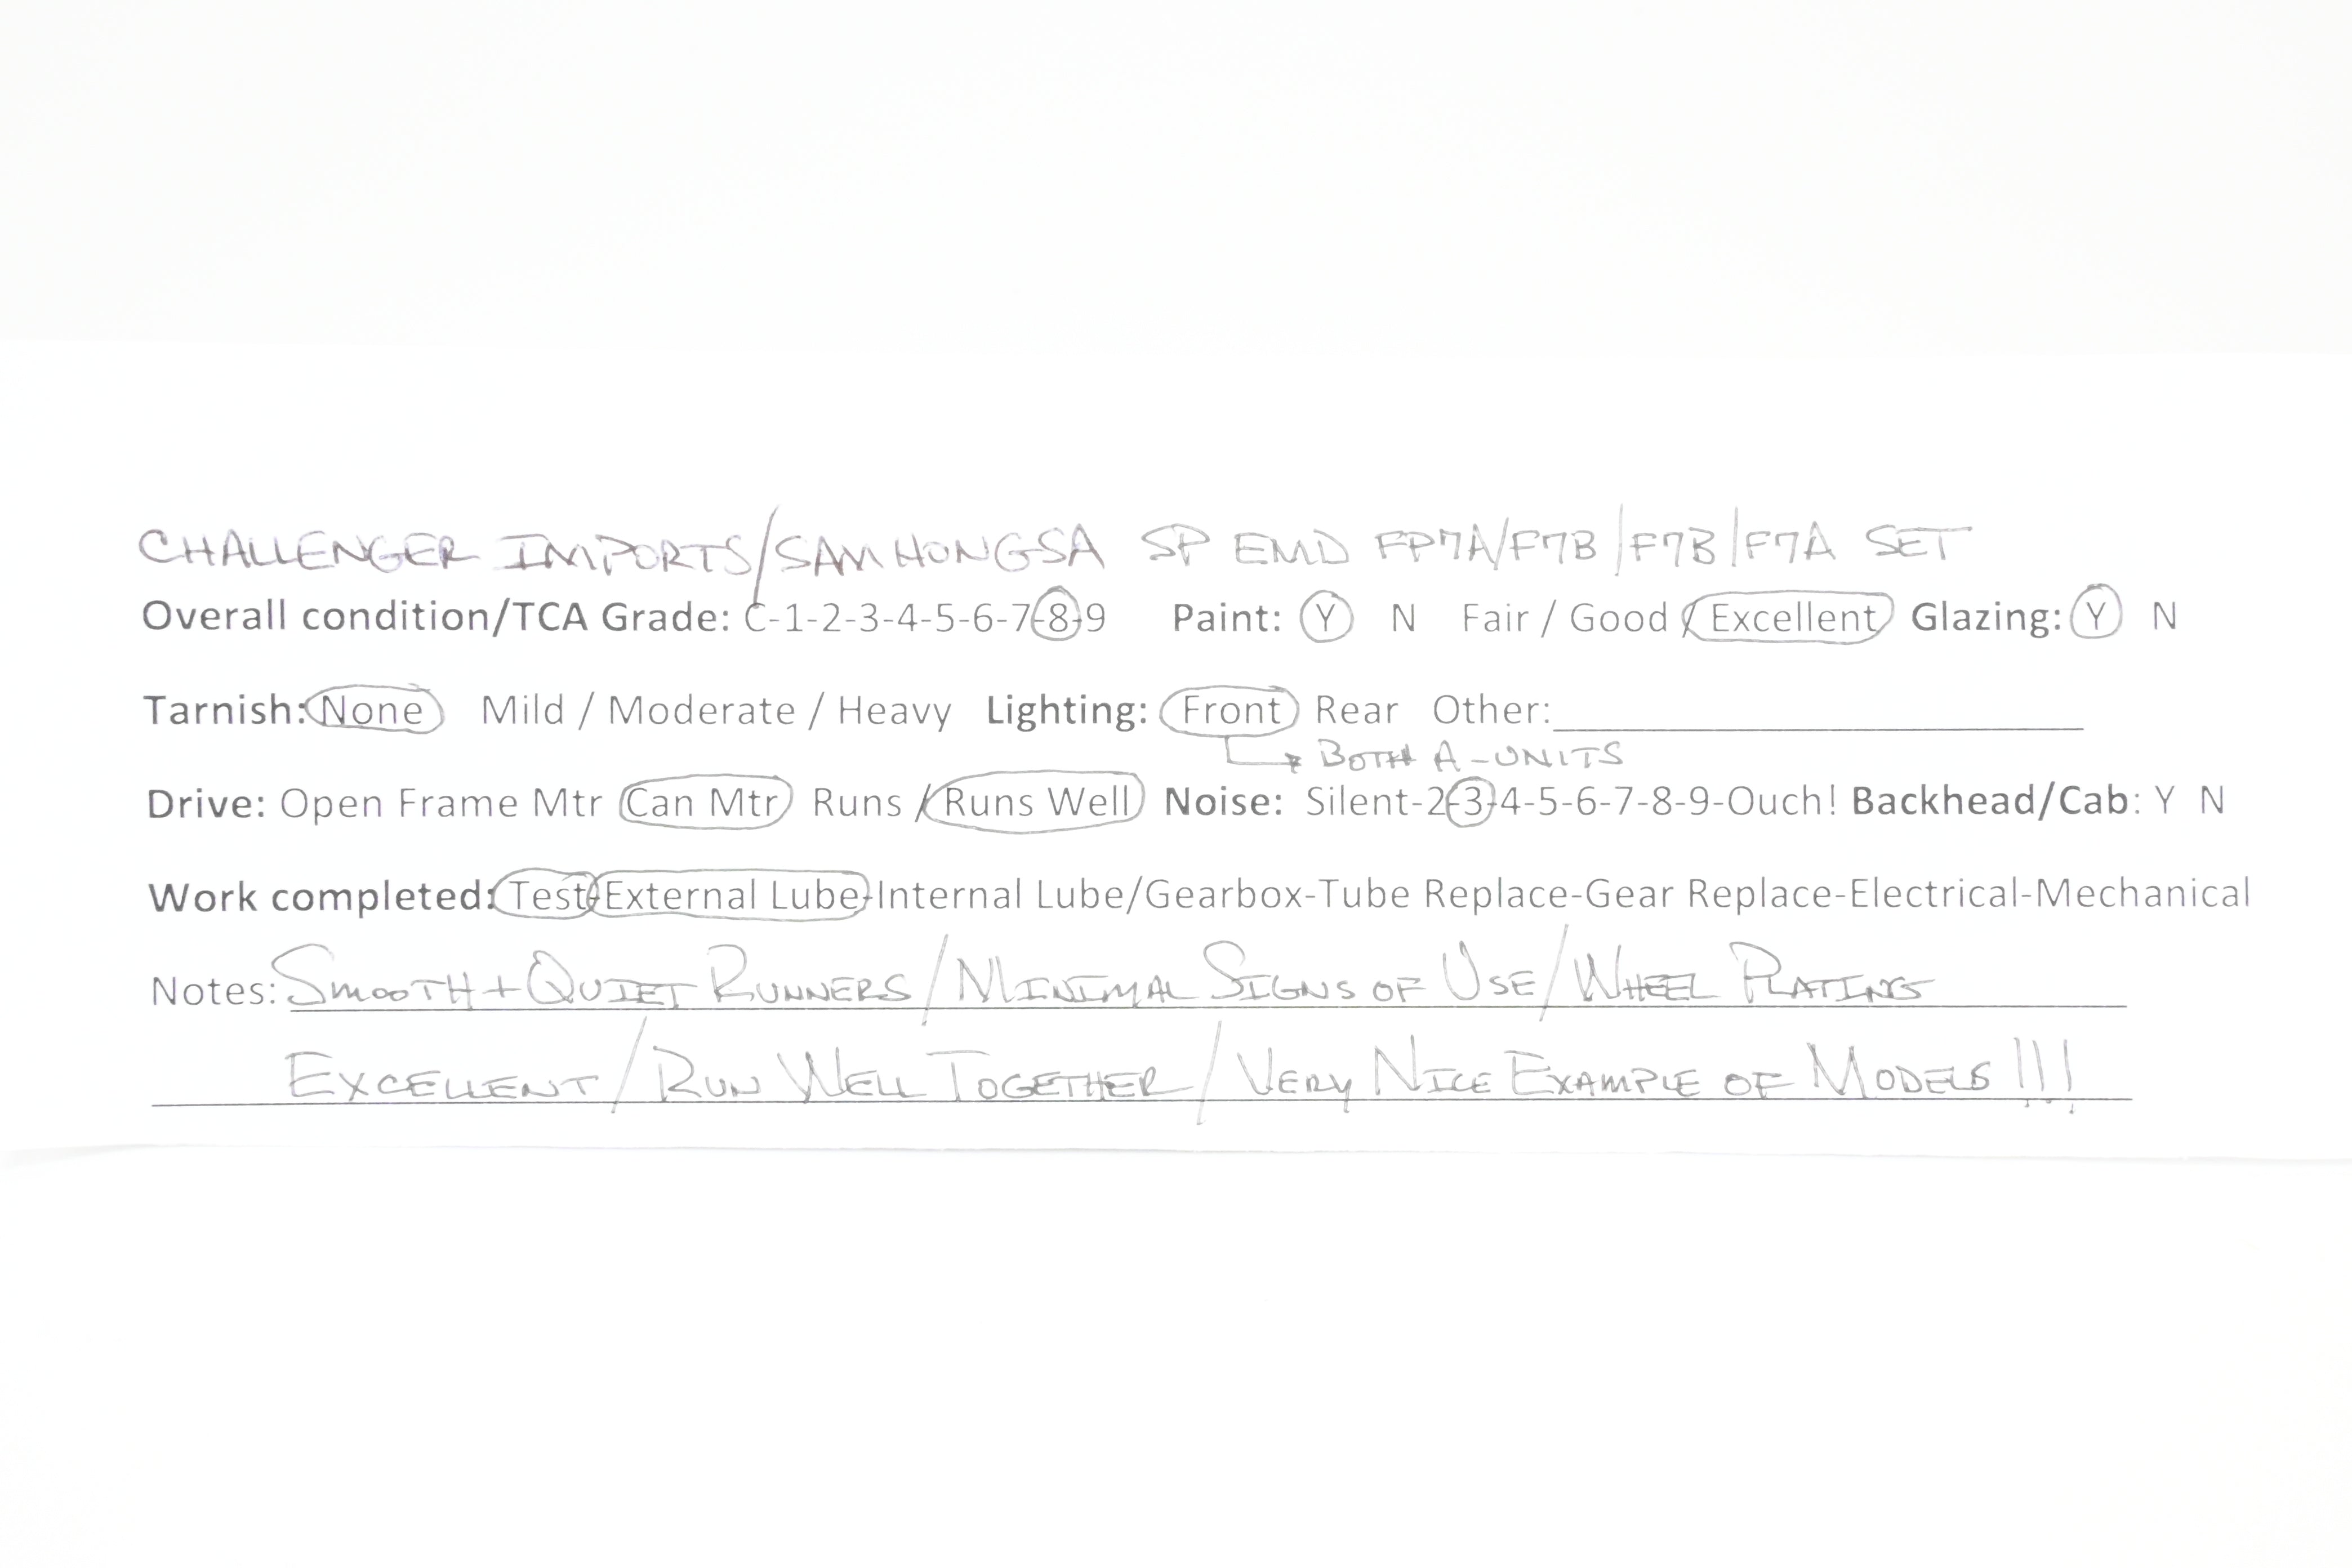 CHALLENGER IMPORTS/SAMHONGSA SP EMD FP7A/F7B/F7B/F7A SET
Overall condition/TCA Grade: C-1-2-3-4-5-6-7-8-9 Paint: Y N Fair / Good / Excellent Glazing: Y N
Tarnish: None Mild / Moderate / Heavy Lighting: Front Rear Other:
BOTH A-UNITS
Drive: Open Frame Mtr Can Mtr Runs / Runs Well Noise: Silent-2-3-4-5-6-7-8-9-Ouch! Backhead/Cab: Y N
Work completed: Test-External Lube-Internal Lube/Gearbox-Tube Replace-Gear Replace-Electrical-Mechanical
Notes: SMOOTH + QUIET RUNNERS/MINIMAL SIGNS OF USE/WHEEL PLATING
EXCELLENT/RUN WELL TOGETHER/VERY NICE EXAMPLE OF MODELS!!!